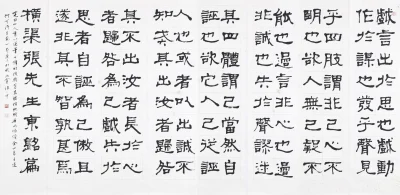 戲言出於思也戲動
作於謀也發乎聲見
乎四肢謂非己心不
明也欲人無己疑不
能也過言非心也過動
非誠也失於聲謬迷
其四體謂己當然自
誣也欲它人己從誣
人也或者以出於心
者歸咎為己戲失於
思者自誣為己誠不
知戒其出汝者歸咎
其不出汝者長傲且
遂非不智孰甚焉
橫渠張先生東銘篇